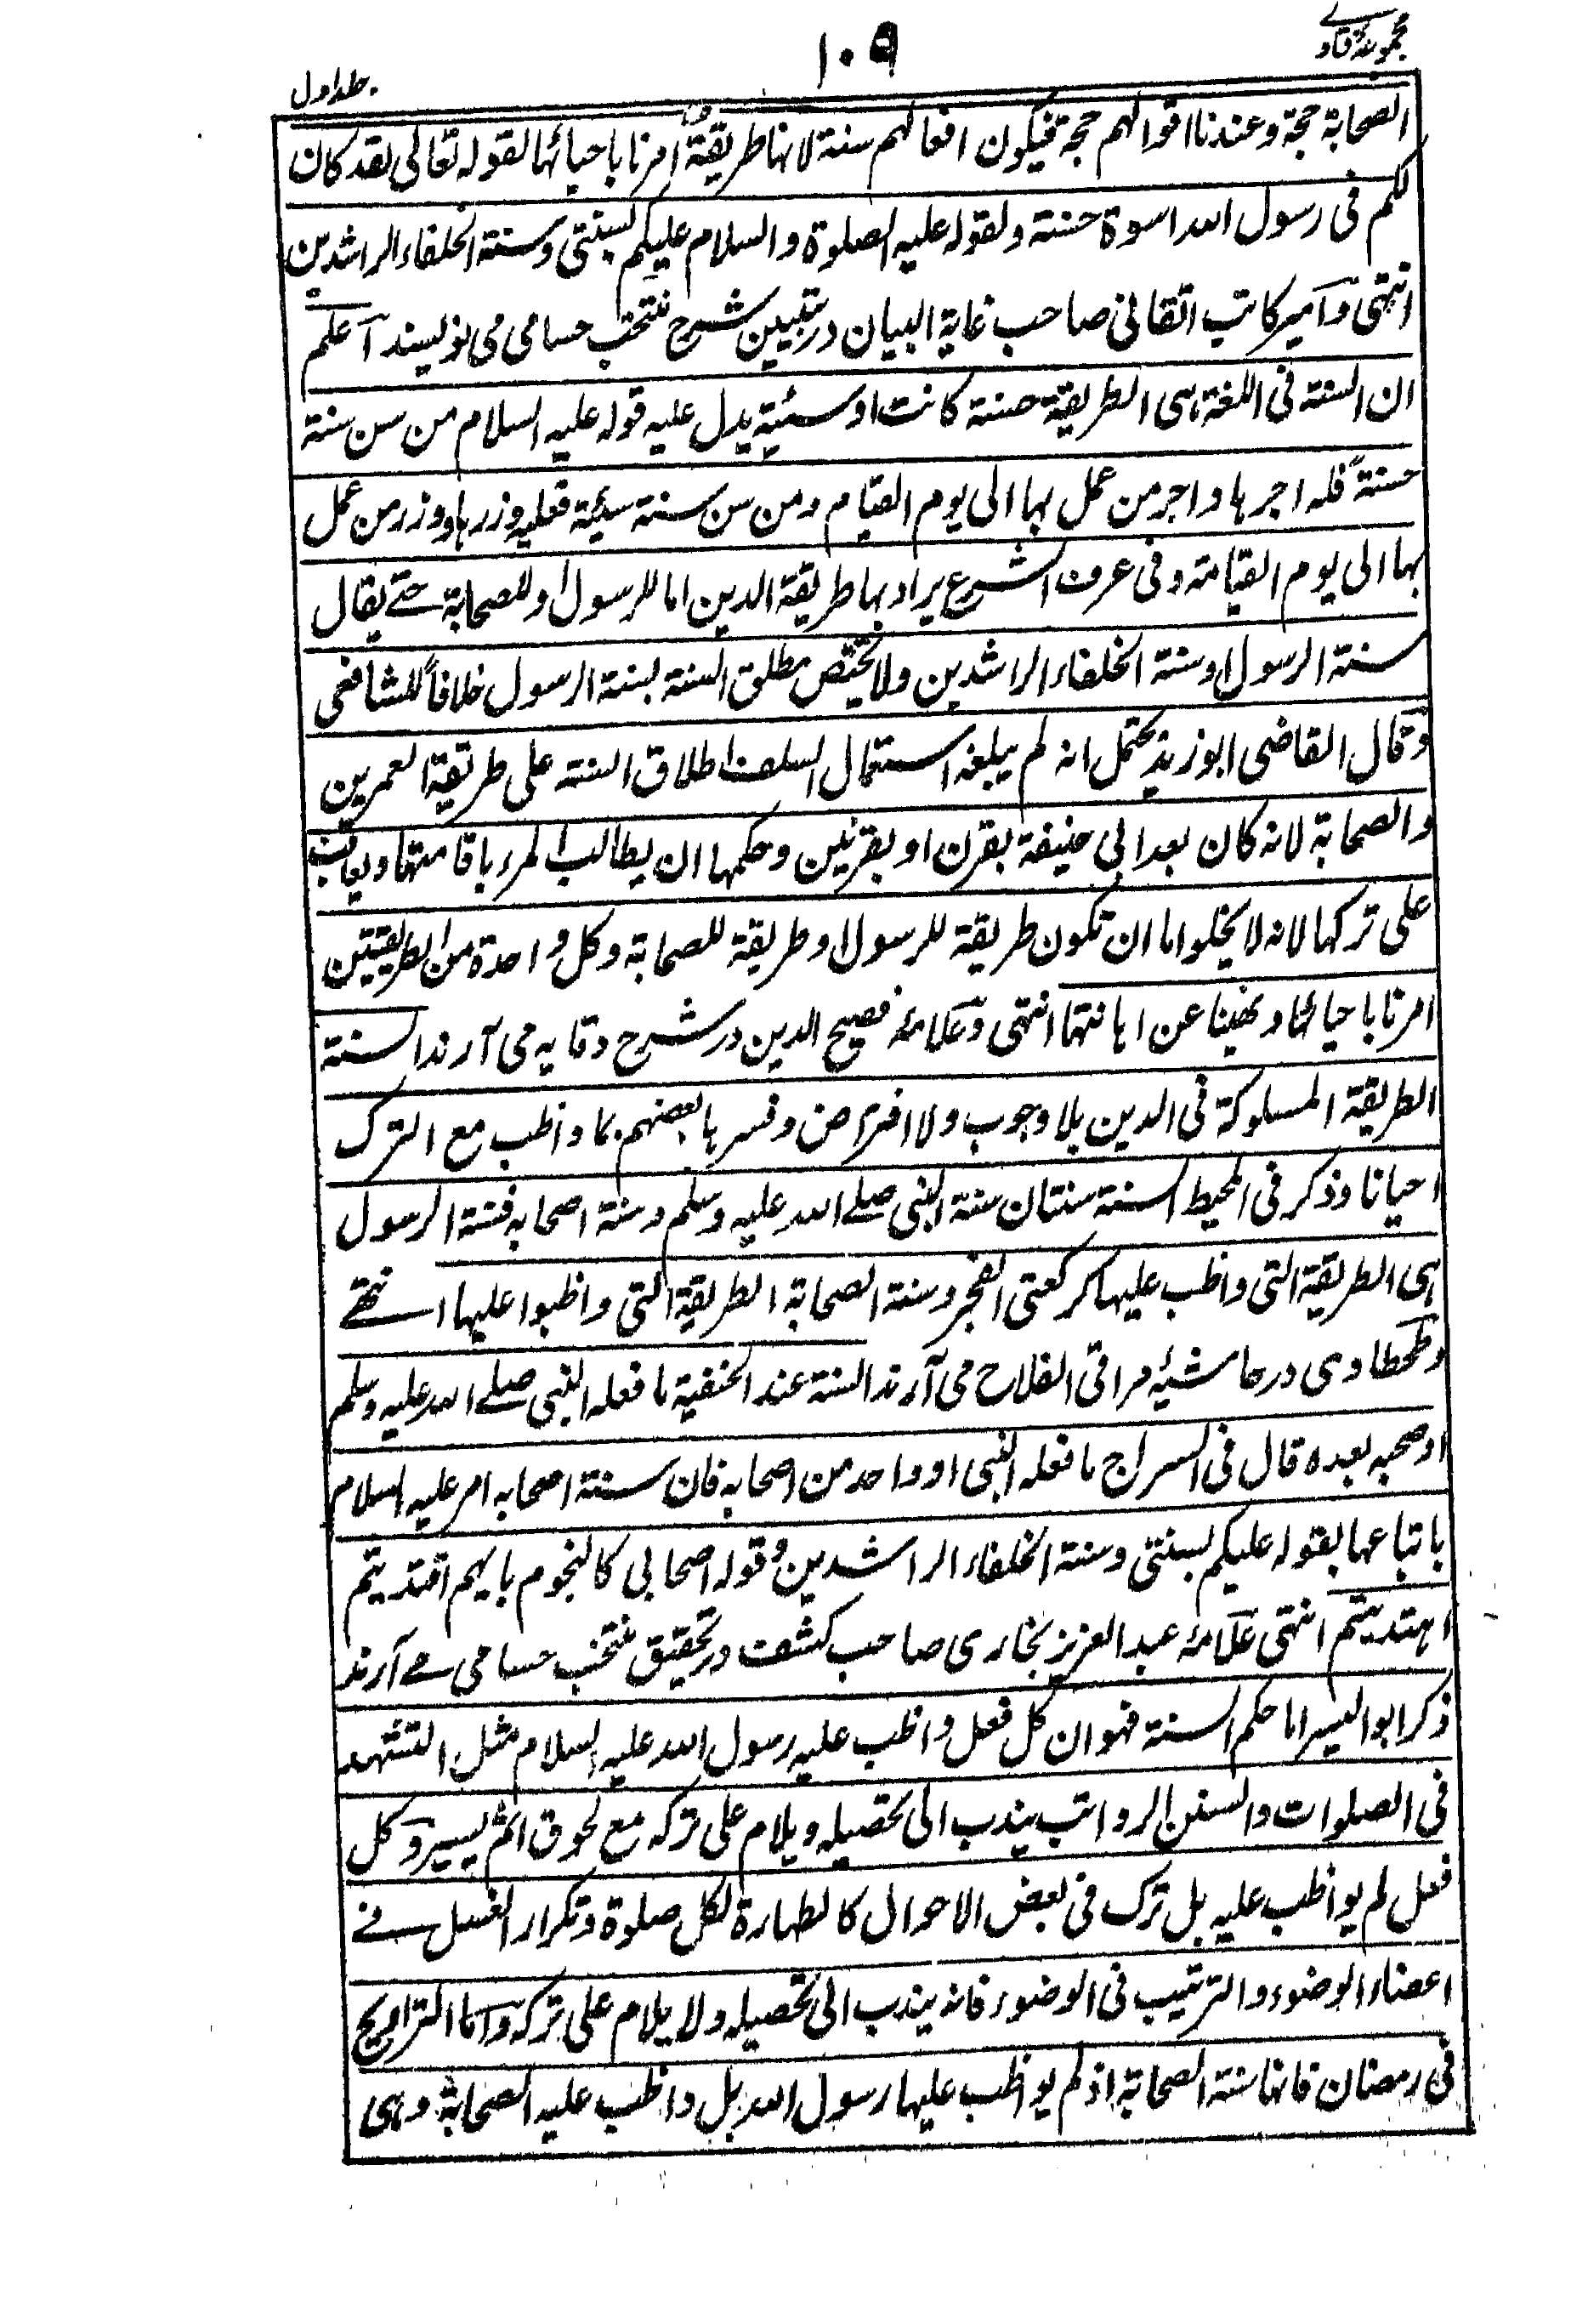 مجموعۂ فتاوے
۱۰۹
جلد اول
الصحابة حجة وعندنا اقوالهم حجة فيكون افعالهم سنة لانها طريقة امرنا باحيائها لقوله تعالى لقد كان
لكم فى رسول الله اسوة حسنة ولقوله عليه الصلوة والسلام عليكم بسنتى وسنة الخلفاء الراشدين
انتهى وامير كاتب اتقانى صاحب غاية البيان در تبيين شرح منتخب حسامى مى نويسند اعلم
ان السنة فى اللغة هى الطريقة حسنة كانت او سيئة يدل عليه قوله عليه السلام من سن سنة
حسنةً فله اجرها واجر من عمل بها الى يوم القيام ومن سن سنة سيئة فعليه وزرها ووزر من عمل
بها الى يوم القيامة وفى عرف الشرع يراد بها طريقة الدين اما للرسول او للصحابة حتے يقال
سنة الرسول او سنة الخلفاء الراشدين ولا يختص مطلق السنة بسنة الرسول خلافاً للشافعى
وقال القاضى ابو زيد يحتمل انه لم يبلغه استعمال السلف اطلاق السنة على طريقة العمرين
والصحابة لانه كان بعد ابى حنيفة بقرن او بقرنين وحكمها ان يطالب المرء باقامتها ويعاقب
على تركها لانه لا يخلوا اما ان تكون طريقة للرسول او طريقة للصحابة وكل واحدة من الطريقتين
امرنا باحيائها ونهينا عن اهانتها انتهى وعلامۂ فصيح الدين در شرح وقايه مى آرند السنة
الطريقة المسلوكة فى الدين بلا وجوب ولا افتراض وفسرها بعضهم بما واظب مع الترك
احيانا وذكر فى المحيط السنة سنتان سنة النبى صلے الله عليه وسلم وسنة اصحابه فسنة الرسول
هى الطريقة التى واظب عليها كركعتى الفجر وسنة الصحابة الطريقة التى واظبوا عليها انتهے
وطحطاوى در حاشيۂ مراقى الفلاح مى آرند السنة عند الحنفية ما فعله النبى صلے الله عليه وسلم
او صحبه بعده قال فى السراج ما فعله النبى او واحد من اصحابه فان سنة اصحابه امر عليه السلام
باتباعها بقوله عليكم بسنتى وسنة الخلفاء الراشدين وقوله اصحابى كالنجوم بايهم اقتديتم
اهتديتم انتهى علامۂ عبد العزيز بخارى صاحب كشف در تحقيق منتخب حسامى مے آرند
ذكر ابو اليسر اما حكم السنة فهو ان كل فعل واظب عليه رسول الله عليه السلام مثل التشهد
فى الصلوات والسنن الرواتب يندب الى تحصيله ويلام على تركه مع لحوق اثم يسير وكل
فعل لم يواظب عليه بل ترك فى بعض الاحوال كالطهارة لكل صلوة وتكرار الغسل فے
اعضاء الوضوء والترتيب فى الوضوء فانه يندب الى تحصيله ولا يلام على تركه واما التراويح
فى رمضان فانها سنة الصحابة اذ لم يواظب عليها رسول الله بل واظب عليه الصحابة وهى